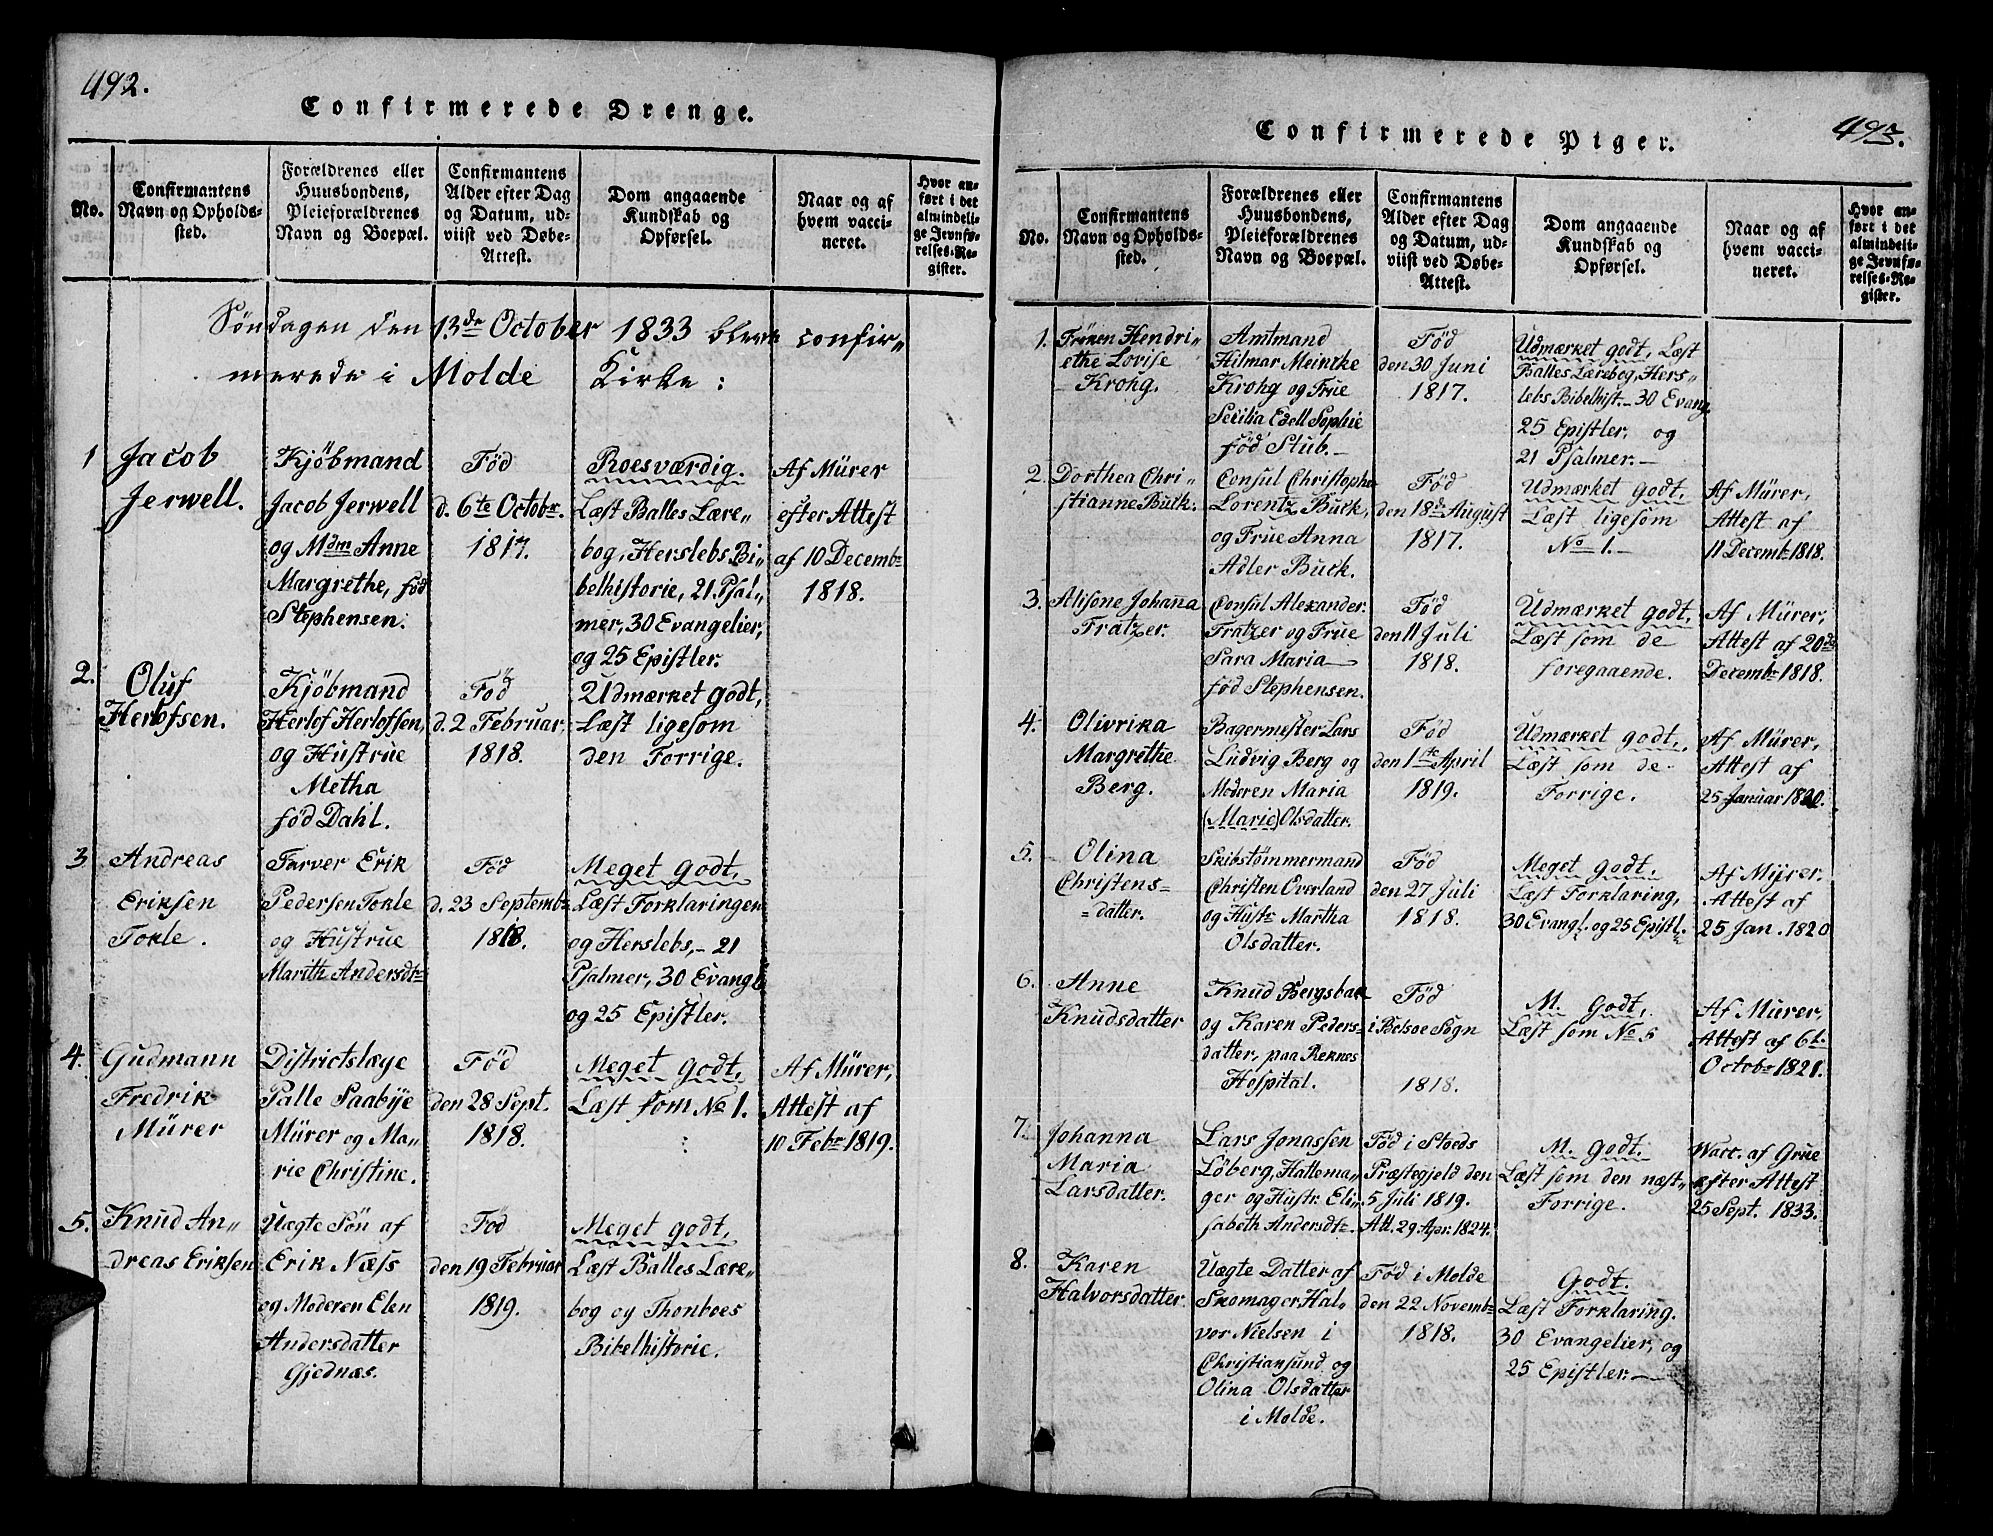 492.
Confirmerede Drenge.
No.
Confirmantens
Navn og Opholds-
sted.
Forældrenes eller
Huusbondens,
Pleieforældrenes
Navn og Boepæl.
Confirmantens
Alder efter Dag
og Datum, ud-
viist ved Døbe-
Attest.
Dom angaaende
Kundskab og
Opførsel.
Naar og af
hvem vacci-
neret.
Hvor an-
ført i det
almindeli-
ge Jevnfø-
relses-Re-
gister.
Søndagen den 13de October 1833 bleve confir„
merede i Molde Kirke:
1
Jacob
Jerwell.
Kjöbmand
Jacob Jerwell
og Mdm Anne
Margrethe, fød
Stephensen.
Fød
d. 6te Octobr.
1817.
Roesværdig.
Læst Balles Lære„
bog, Herslebs Bi„
belhistorie, 21. Psal„
mer, 30 Evangelier,
og 25 Epistler.
Af Mürer
efter Attest
af 10 Decembr
1818.
2.
Oluf
Herlofsen.
Kjöbmand
Herlof Herlofsen,
og Hustrue
Metha
fød Dahl.
Fød
d. 2 Februar,
1818.
Udmærket godt,
Læst ligesom
den Forrige.
3
Andreas
Eriksen
Tokle.
Farver Erik
Pedersen Tokle
og Hustrue
Marith Andersdtr
Fød
d. 23 Septembr
1818.
Meget godt,
Læst Forklaringen
og Herslebs,- 21
Psalmer, 30 Evangl
og 25 Epistler.
4.
Gudmann
Fredrik
Mürer
Districtslæge
Palle Saabye
Mürer og Ma„
rie Christine.
Fød
den 28 Sept.
1818.
Meget godt,
Læst som No 1.
Af Mürer,
Attest af
10 Febr 1819.
5.
Knud An„
dreas Eriksen
Uægte Søn af
Erik Næss
og Moderen Elen
Andersdatter
Gjednæs.
Fød
den 19 Februar
1819.
Meget godt,
Læst Balles Lære„
bog og Thonboes
Bibelhistorie.
493.
Confirmerede Piger.
No.
Confirmantens
Navn og Opholds-
sted.
Forældrenes eller
Huusbondens,
Pleieforældrenes
Navn og Boepæl.
Confirmantens
Alder efter Dag
og Datum, ud-
viist ved Døbe-
Attest.
Dom angaaende
Kundskab og
Opførsel.
Naar og af
hvem vacci-
neret.
Hvor an-
ført i det
almindeli-
ge Jevnfø-
relses-Re-
gister.
1.
Frøken Hendri„
ethe Lovise
Krohg.
Amtmand
Hilmar Meintke
Krohg og Frue
Secilia Edell Sophie
fød Stub.-
Fød
den 30 Juni
1817.
Udmærket godt, Læst
Balles Lærebog, Hers„
lebs Bibelhist.- 30 Evang.
25 Epistler, og
21 Psalmer.-
2.
Dorthea Chri„
stianne Buck.
Consul Christopher
Lorentz Buck,
og Frue Anna
Adler Buck.
Fød
den 18de August
1817.
Udmærket godt,
Læst ligesom
No 1.-
Af Mürer,
Attest af
11 Decembr 1818.
3.
Alisone Johanna
Fratzer.
Consul Alexander
Fratzer og Frue
Sara Maria
fød Stephensen.
Fød
den 11 Juli
1818.
Udmærket godt,
Læst som de
foregaaende.
Af Mürer,
Attest af 20de
Decembr 1818.
4.
Olivrika
Margrethe
Berg.
Bagermester Lars
Ludvig Berg og
Moderen Maria
(Marie) Olsdatter.
Fød
den 1ste April
1819.
Udmærket godt,
Læst som de
Forrige.
Af Mürer,
Attest af
25 Januar 1820.
5.
Olina
Christens=
=datter.
Skibstømmermand
Christen Overland
og Hustr Martha
Olsdatter.
Fød
den 27 Juli
1818.
Meget godt,
Læst Forklaring,
30 Evangl. og 25 Epistl.
Af Mürer,
Attest af
25 Jan. 1820
6.
Anne
Knudsdatter
Knud Bergsbak
og Karen Peders-
datter, paa Reknes
Hospital.
Fød
i Bolsøe Sogn
1818.
M. godt,
Læst som No 5
Af Murer,
Attest af 6te
Octobr 1821.
7.
Johanna
Maria
Larsdatter.
Lars Jonassen
Löberg, Hattema„
ger og Hustr. Eli„
sabeth Andersdtr.
Fød i Stoeds
Præstegjeld den
5 Juli 1819.
Att. 29. Apr. 1824.
M. godt.
Læst som den næst„
Forrige.
Vacc. af Grue
efter Attest
25 Sept. 1833.
8.
Karen
Halvorsdatter
Uægte Datter af
Skomager Hal„
vor Nielsen i
Christiansund og
Olina Olsdatter
i Molde.
Fød i Molde
den 22 Novembr
1818.
Godt.
Læst Forklaring.
30 Evangelier, og
25 Epistler.-